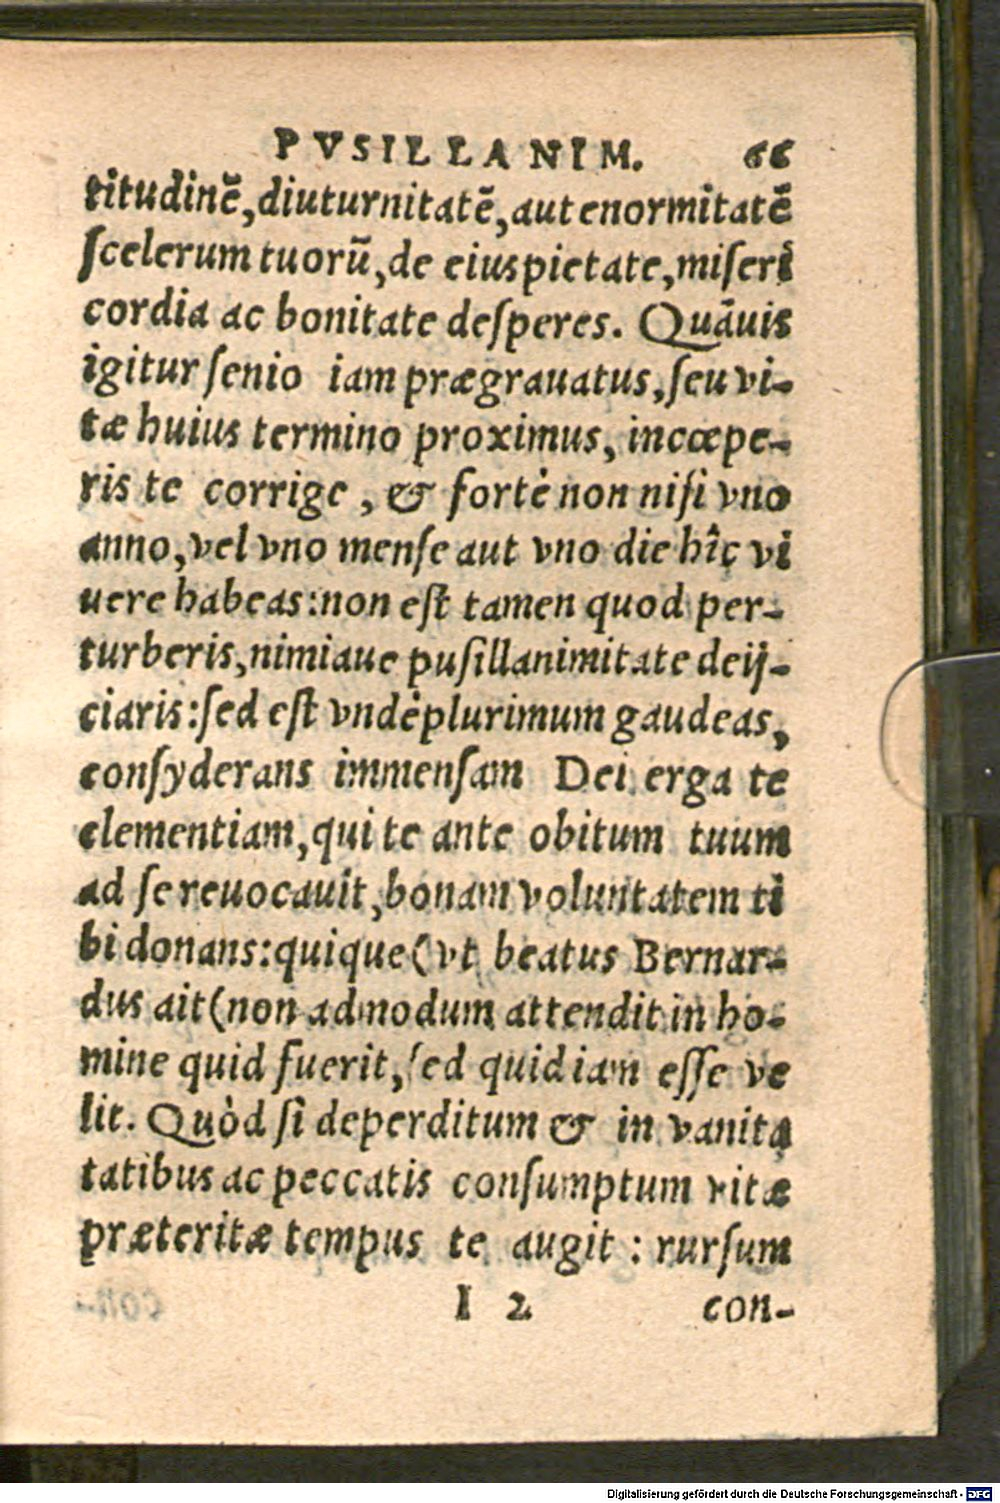 PVSILLANIM. 66
titudinē, diuturnitatē, aut enormitatē
ſcelerum tuorū, de eius pietate, miſeri
cordia ac bonitate deſperes. Quāuis
igitur ſenio iam prægrauatus, ſeu vi-
tæ huius termino proximus, incœpe-
ris te corrige, & fortè non niſi vno
anno, vel vno menſe aut vno die hîc vi
uere habeas: non eſt tamen quod per-
turberis, nimiaue puſillanimitate deij-
ciaris: ſed eſt vndè plurimum gaudeas,
conſyderans immenſam Dei erga te
clementiam, qui te ante obitum tuum
ad ſe reuocauit, bonam voluntatem ti
bi donans: quique (vt beatus Bernar-
dus ait( non admodum attendit in ho-
mine quid fuerit, ſed quid iam eſſe ve
lit. Quòd ſi deperditum & in vanita
tatibus ac peccatis conſumptum vitæ
præteritæ tempus te augit: rurſum
I 2 con-
Digitalisierung gefördert durch die Deutsche Forschungsgemeinschaft - DFG